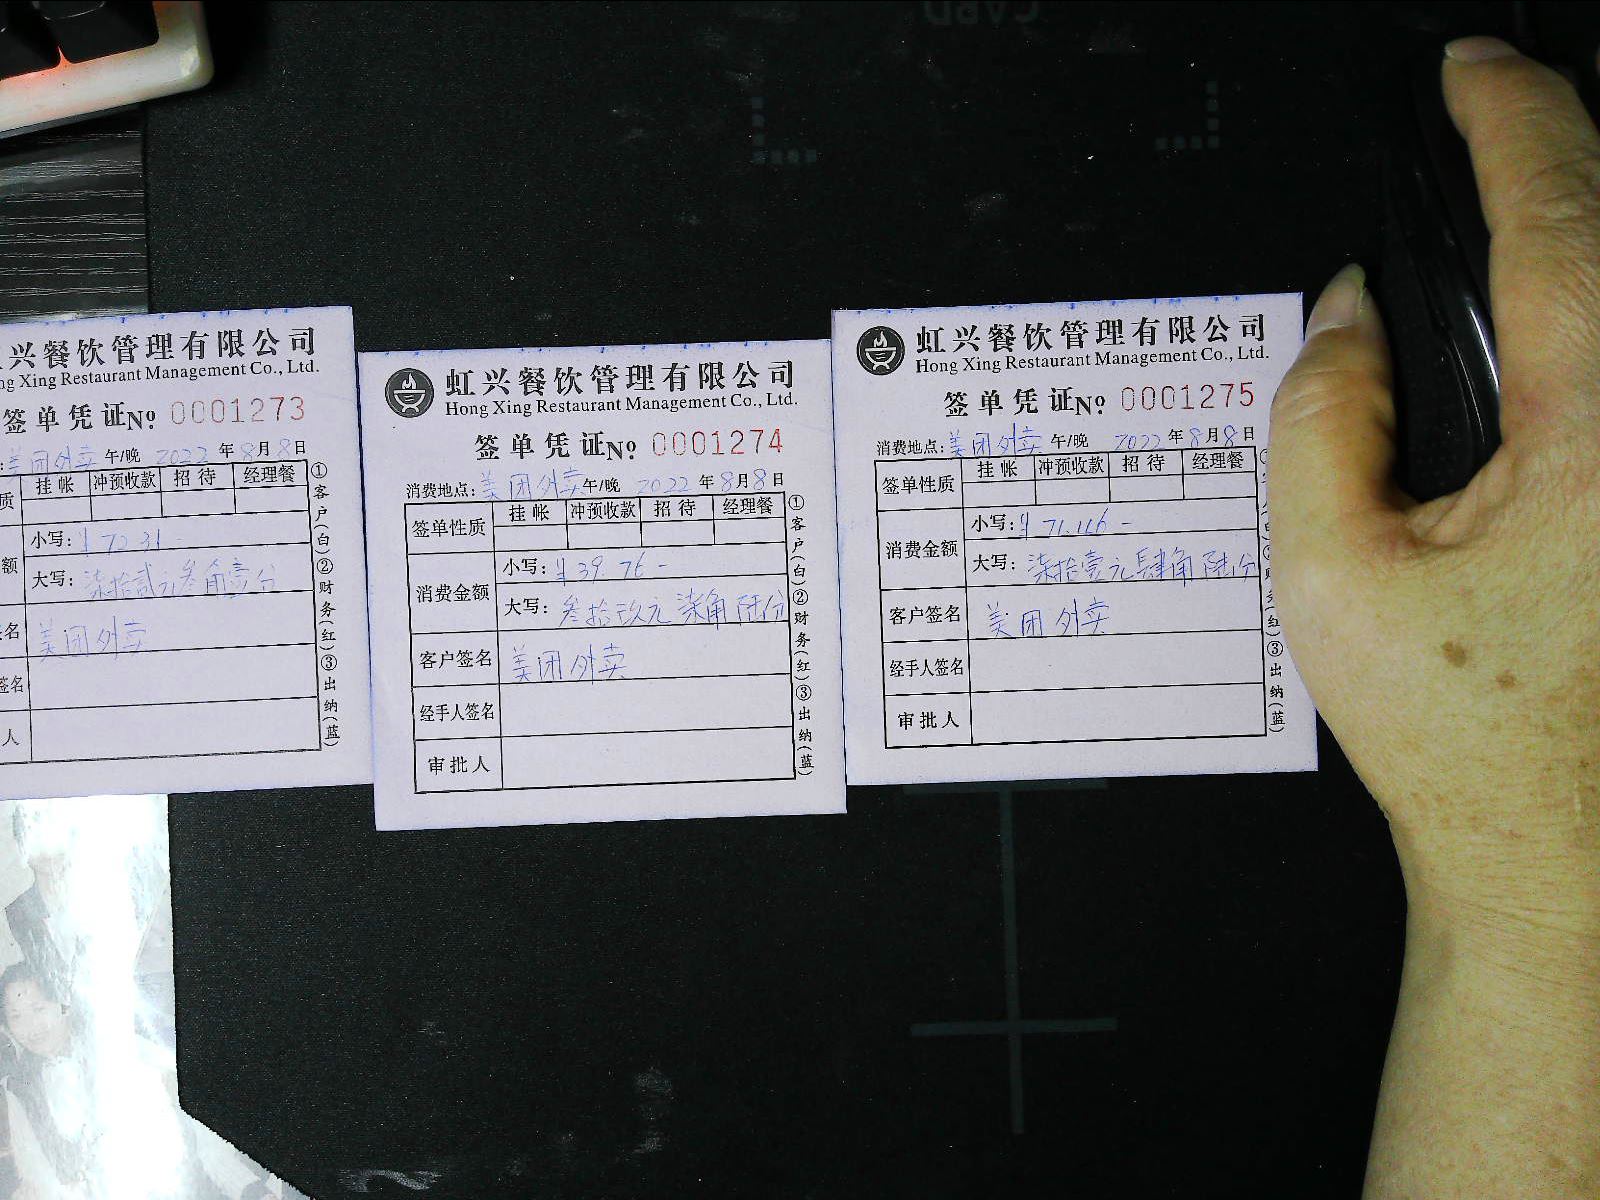 CARD
兴餐饮管理有限公司
ng Xing Restaurant Management Co., Ltd.
签单凭证 No 0001273
: 美团外卖 午/晚 2022 年 8 月 8 日
质 挂帐 冲预收款 招待 经理餐
额 小写: ¥ 72.31 -
大写: 柒拾贰元叁角壹分
名 美团外卖
签名
人
①客户(白)②财务(红)③出纳(蓝)
虹兴餐饮管理有限公司
Hong Xing Restaurant Management Co., Ltd.
签单凭证 No 0001274
消费地点: 美团外卖 午/晚 2022 年 8 月 8 日
签单性质 挂帐 冲预收款 招待 经理餐
消费金额 小写: ¥ 39.76 -
大写: 叁拾玖元柒角陆分
客户签名 美团外卖
经手人签名
审批人
①客户(白)②财务(红)③出纳(蓝)
虹兴餐饮管理有限公司
Hong Xing Restaurant Management Co., Ltd.
签单凭证 No 0001275
消费地点: 美团外卖 午/晚 2022 年 8 月 8 日
签单性质 挂帐 冲预收款 招待 经理餐
消费金额 小写: ¥ 71.46 -
大写: 柒拾壹元肆角陆分
客户签名 美团外卖
经手人签名
审批人
(红)③出纳(蓝)